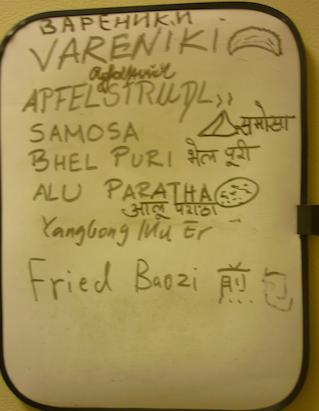 ВАРЕНИКИ
VARENIKI
Apfelstrudel
APFELSTRUDL
SAMOSA समोसा
BHEL PURI भेल पूरी
ALU PARATHA
आलू पराठा
Yangbong Mu Er
Fried Baozi 煎包